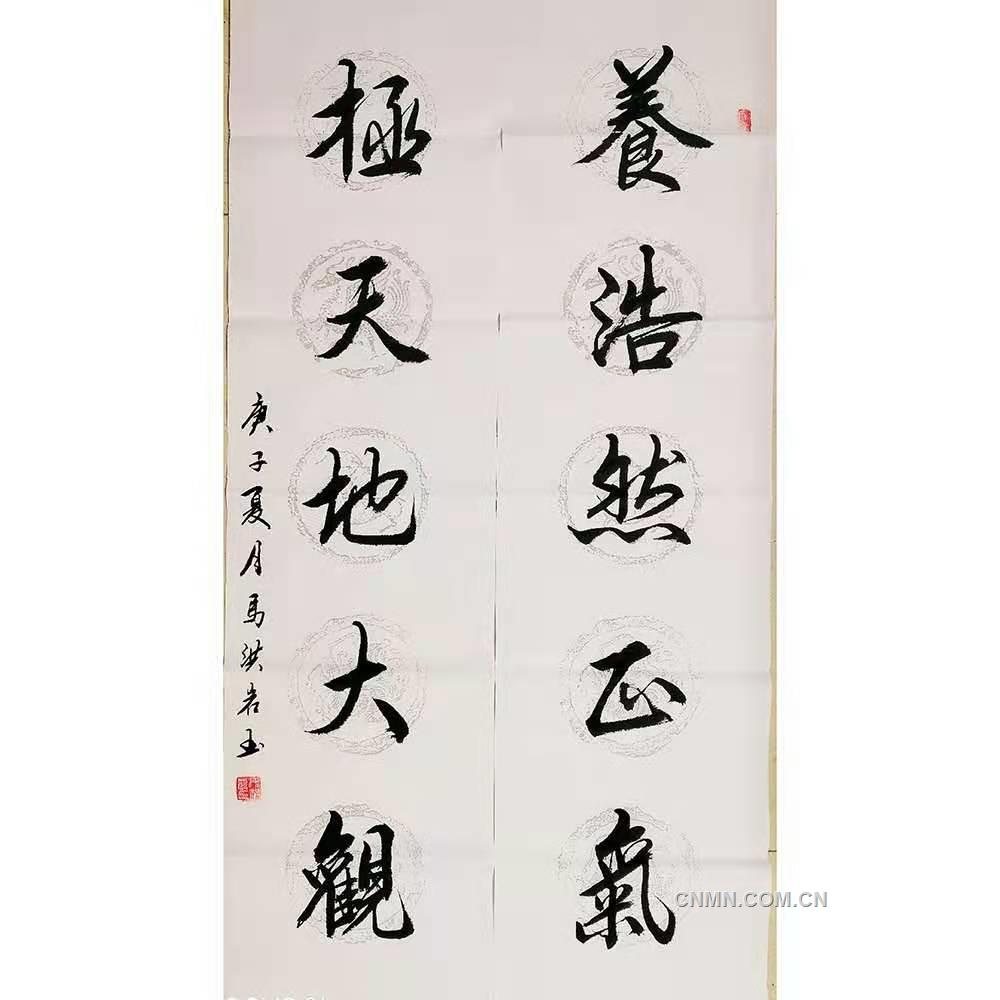 養浩然正氣
極天地大觀
庚子夏月馬洪岩书
CNMN.COM.CN